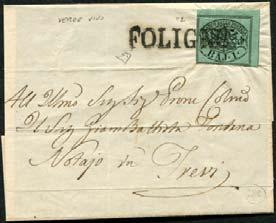 VERDE VIVO
FOLIG
BAJ. 1
All' Illmo Sig. Sig. Prone Colmo
Il Sig. Giambattista Fontana
Notajo in Trevi